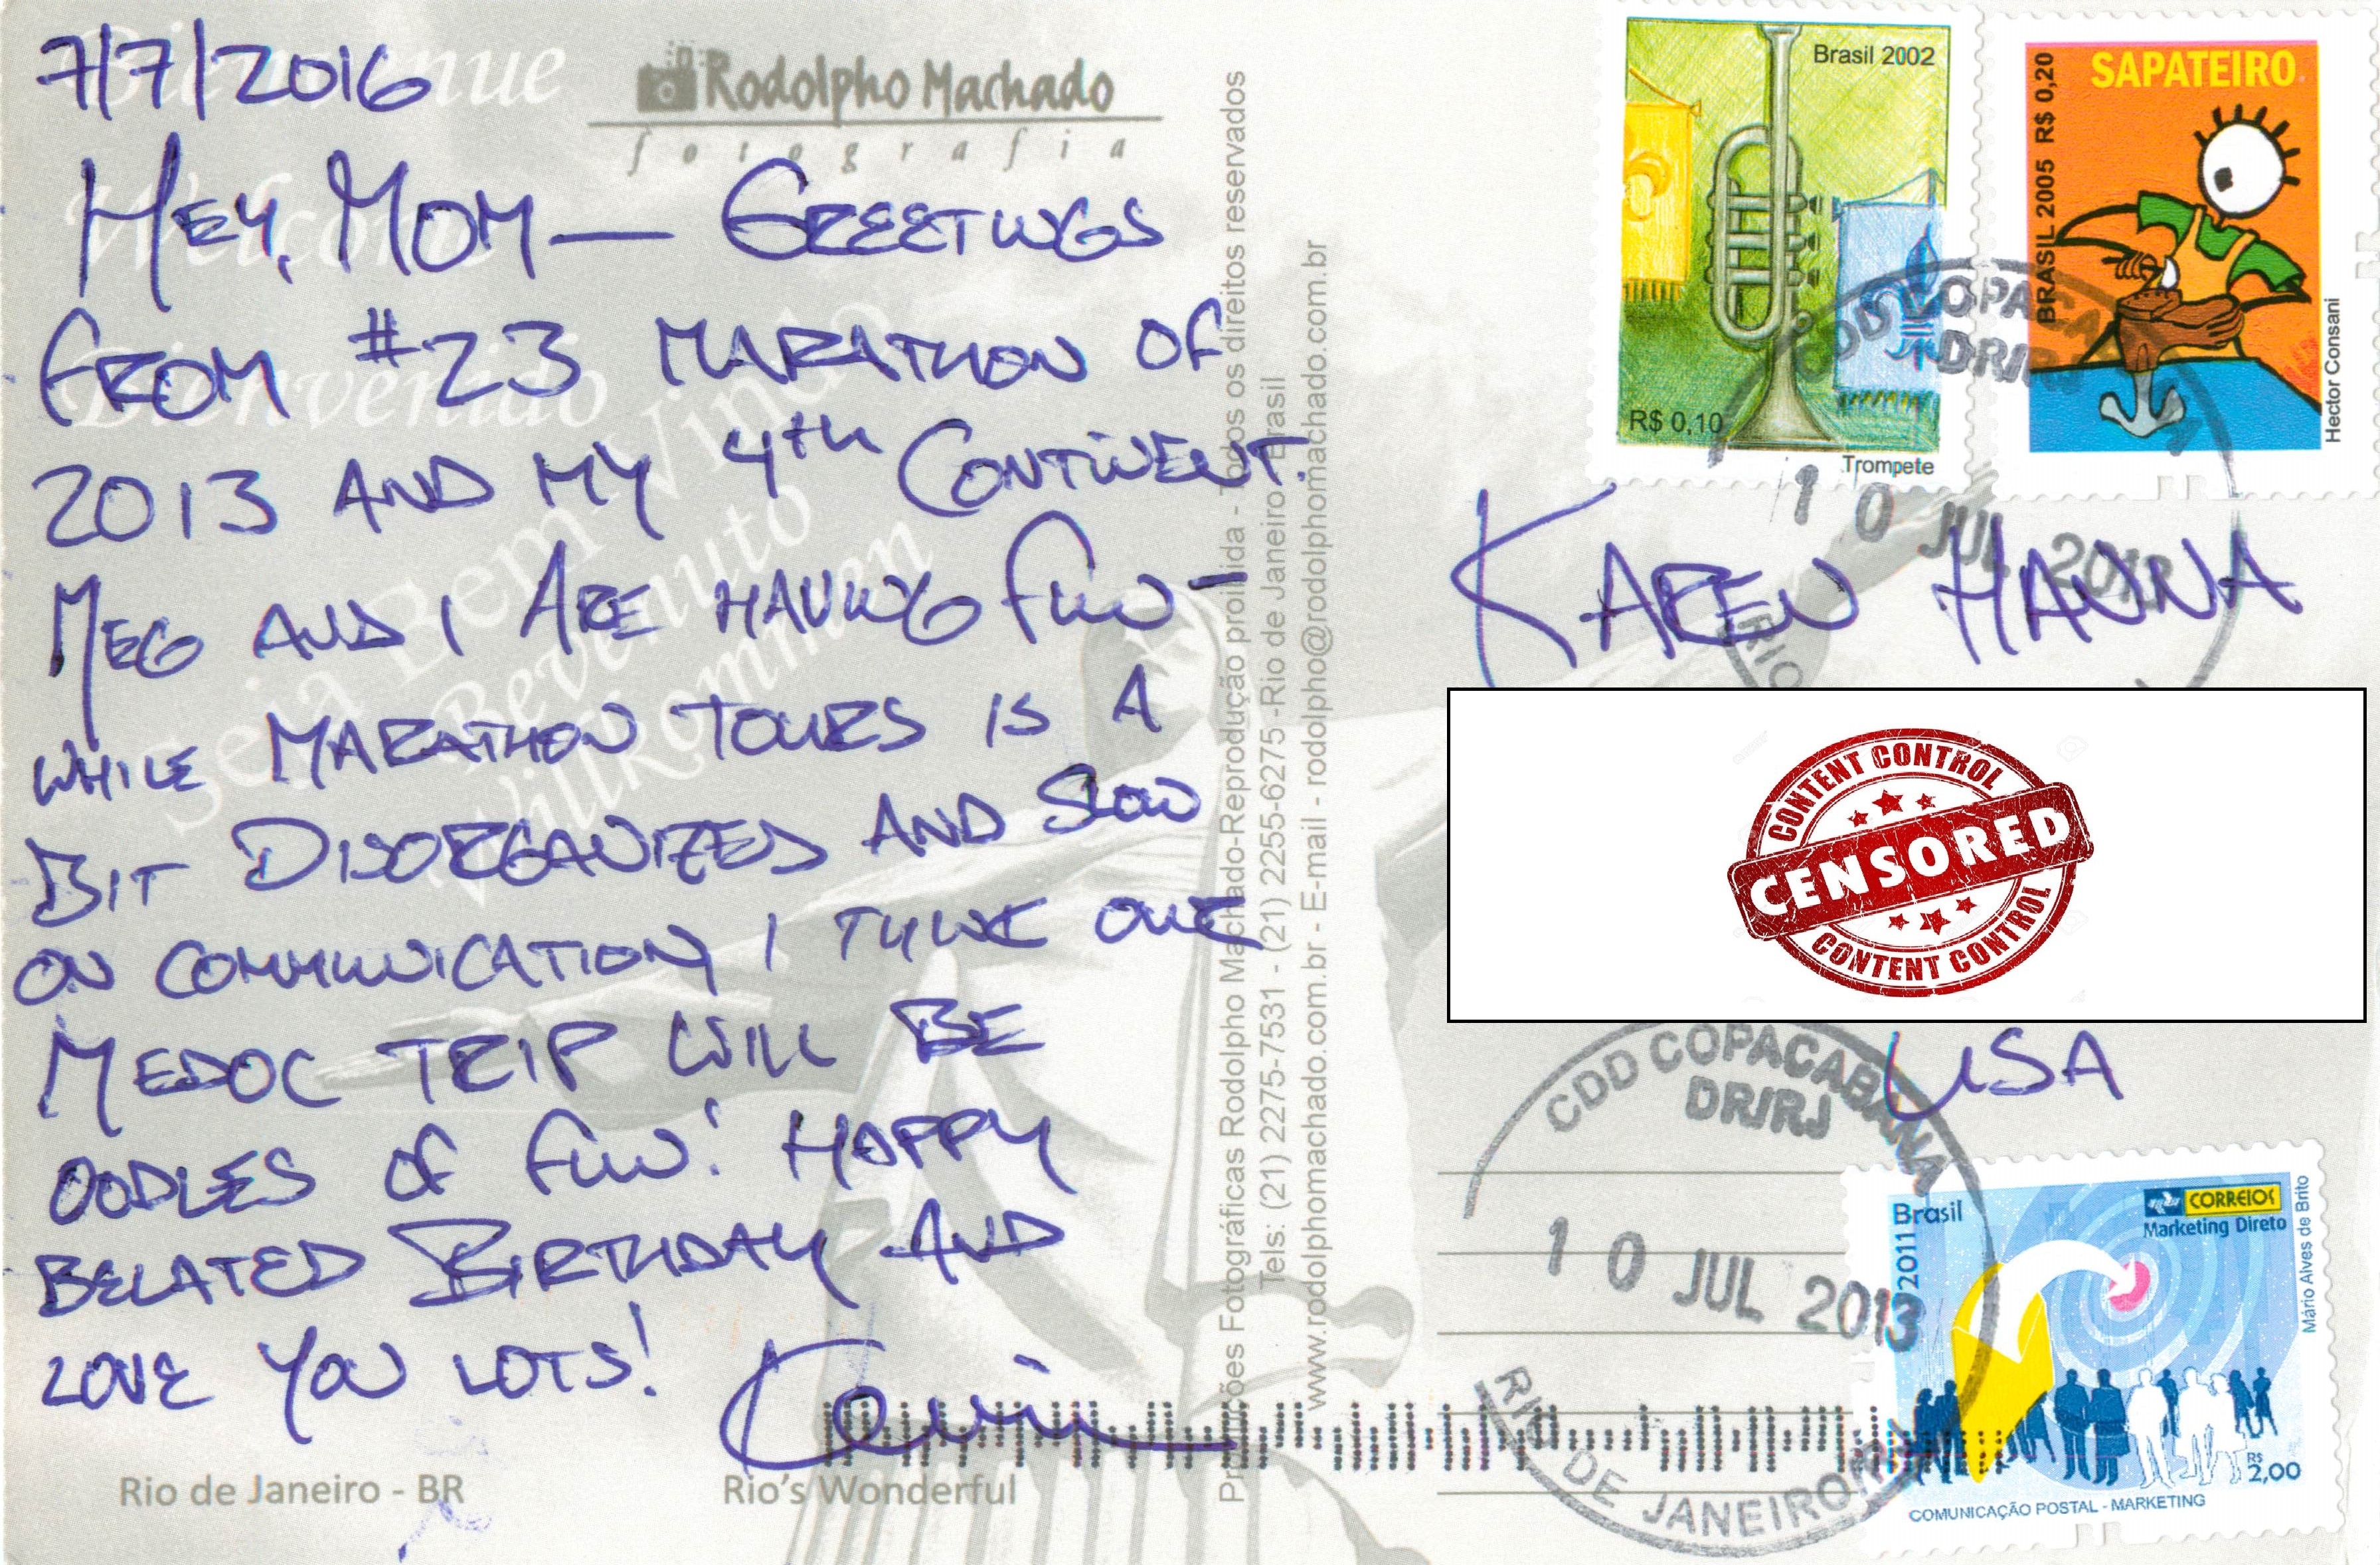 7/7/2016
HEY, MOM — GREETINGS
FROM #23 MARATHON OF
2013 AND MY 4th CONTINENT.
MEG AND I ARE HAVING FUN -
WHILE MARATHON TOURS IS A
BIT DISORGANIZED AND SLOW
ON COMMUNICATION, I THINK OUR
MEDOC TRIP WILL BE
OODLES OF FUN! HAPPY
BELATED BIRTHDAY AND
LOVE YOU LOTS!
Kevin
Bienvenue
Welcome
Bienvenido
Seja Bem Vindo
Bevenuto
Willkommen
Rodolpho Machado
fotografia
Rio de Janeiro - BR
Rio's Wonderful
Promoções Fotográficas Rodolpho Machado-Reprodução proibida - Todos os direitos reservados
Tels: (21) 2275-7531 - (21) 2255-6275 -Rio de Janeiro - Brasil
www.rodolphomachado.com.br - E-mail - rodolpho@rodolphomachado.com.br
Brasil 2002
R$ 0,10
Trompete
SAPATEIRO
BRASIL 2005 R$ 0,20
Hector Consani
CDD COPACABANA
DR/RJ
10 JUL 2013
RIO
KAREN HANNA
CONTENT CONTROL
CENSORED
CONTENT CONTROL
USA
CDD COPACABANA
DR/RJ
10 JUL 2013
RIO DE JANEIRO
Brasil
2011
CORREIOS
Marketing Direto
Mário Alves de Brito
R$ 2,00
COMUNICAÇÃO POSTAL - MARKETING